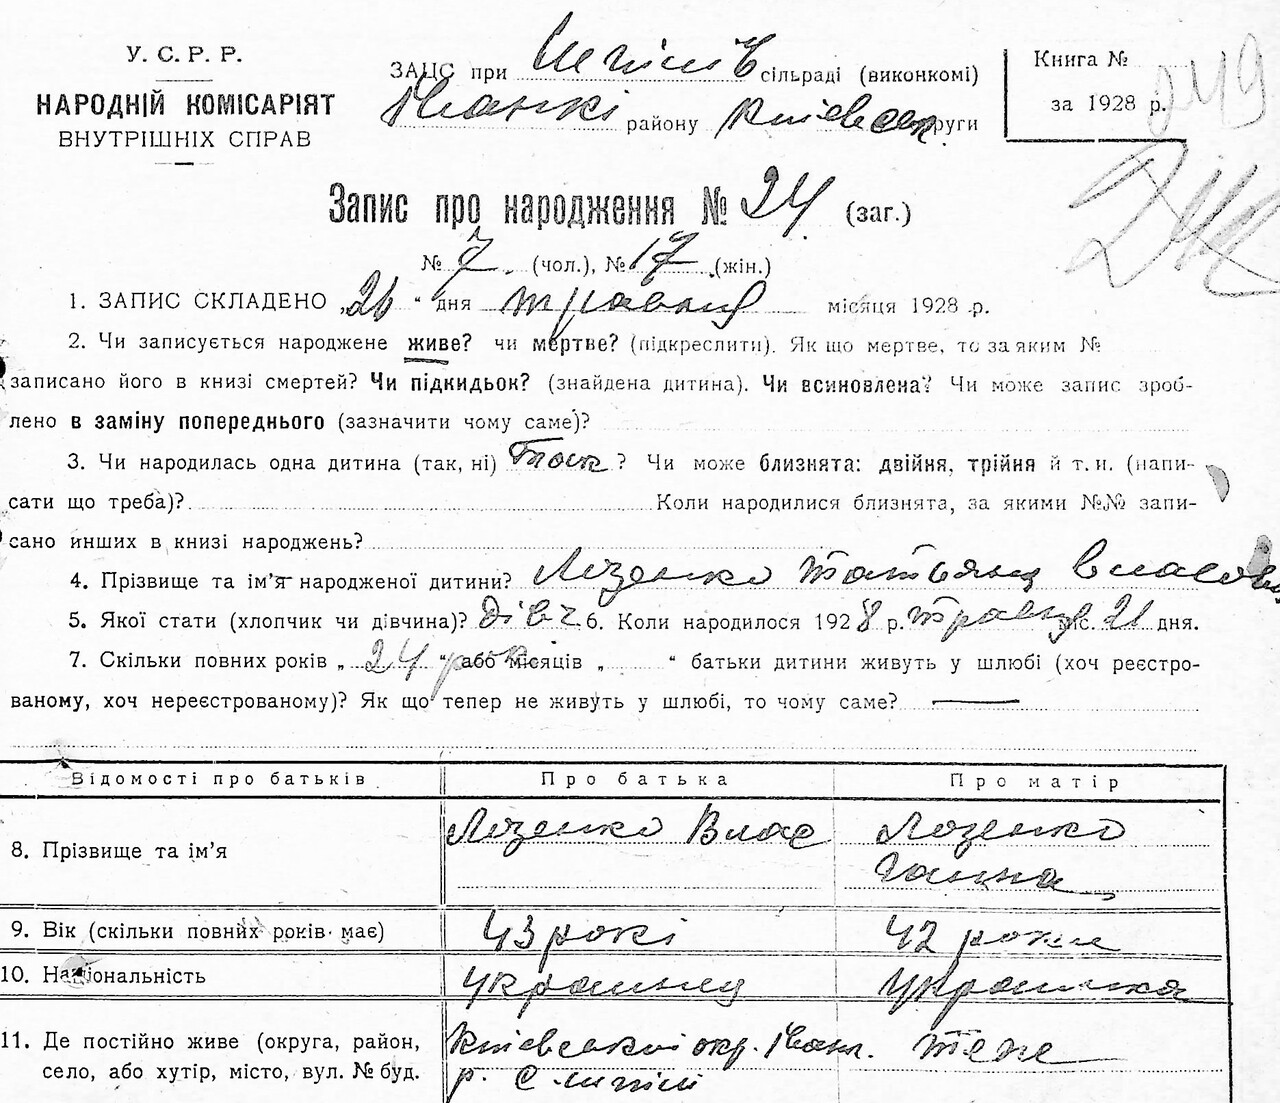 У. С. Р. Р.
НАРОДНІЙ КОМІСАРІЯТ
ВНУТРІШНІХ СПРАВ
ЗАЦС при сільраді (виконкомі)
Іванкі району Київськ округи
Книга №
за 1928 р.
Запис про народження № 24 (заг.)
№ 7 (чол.), № 17 (жін.)
1. ЗАПИС СКЛАДЕНО „26 “ дня травня місяця 1928 р.
2. Чи записується народжене живе? чи мертве? (підкреслити). Як що мертве, то за яким №
записано його в книзі смертей? Чи підкидьок? (знайдена дитина). Чи всиновлена? Чи може запис зроб-
лено в заміну попереднього (зазначити чому саме)?
3. Чи народилась одна дитина (так, ні) Так ? Чи може близнята: двійня, трійня й т. и. (напи-
сати що треба)? Коли народилися близнята, за якими №№ запи-
сано инших в книзі народжень?
4. Прізвище та ім'я народженої дитини? Лозенко Татьяна Власовн
5. Якої стати (хлопчик чи дівчина)? Дівч. 6. Коли народилося 1928 р. травня міс. 21 дня.
7. Скільки повних років „ 24 рок “ або місяців „ “ батьки дитини живуть у шлюбі (хоч реєстро-
ваному, хоч нереєстрованому)? Як що тепер не живуть у шлюбі, то чому саме? —
Відомості про батьків Про батька Про матір
8. Прізвище та ім'я Лозенко Влас Лозенко
Ганна
9. Вік (скільки повних років має) 43 рокі 42 роки
10. Національність Украінец Украинка
11. Де постійно живе (округа, район, Київській окр. Іванк. Теже
село, або хутір, місто, вул. № буд. р. с.